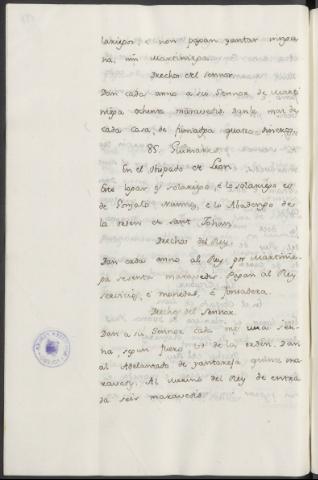 lariegos, e non pagan yantar ninguna, nin Martiniega.
Derechos del Sennor.
Dan cada anno a su Sennor de Martiniega ochenta maravedis
cada casa, de fumadga quatro dineros.
85. Guimara
En el Obispado de Leon
Este logar es solariego, e lo solariego es
de Gonzalo Nunnez, e lo Abadengo de
la Orden de Sant Johan.
Derechos del Rey.
Dan cada anno al Rey por Martiniega sesenta maravedis. Pagan al Rey
servicios, e monedas, e fonsadera.
Derechos del Sennor.
Dan a su Sennor cada
segun fuero es de la orden. Dan
al Adelantado de yantareja quince maravedis. Al Merino del Rey de entrada seis maravedis.